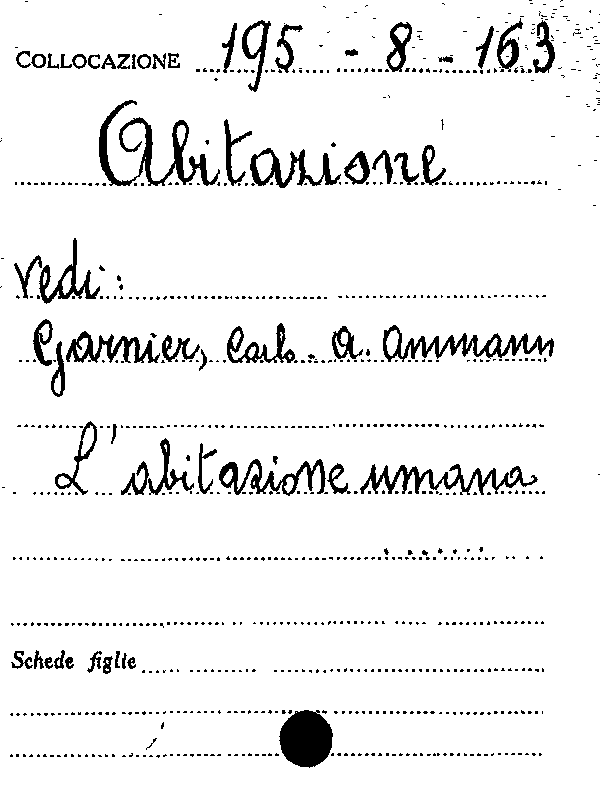 COLLOCAZIONE 195 - 8 - 163
Abitazione
vedi:
Garnier, Carlo. A. Ammann
L'abitazione umana
.......
Schede figlie